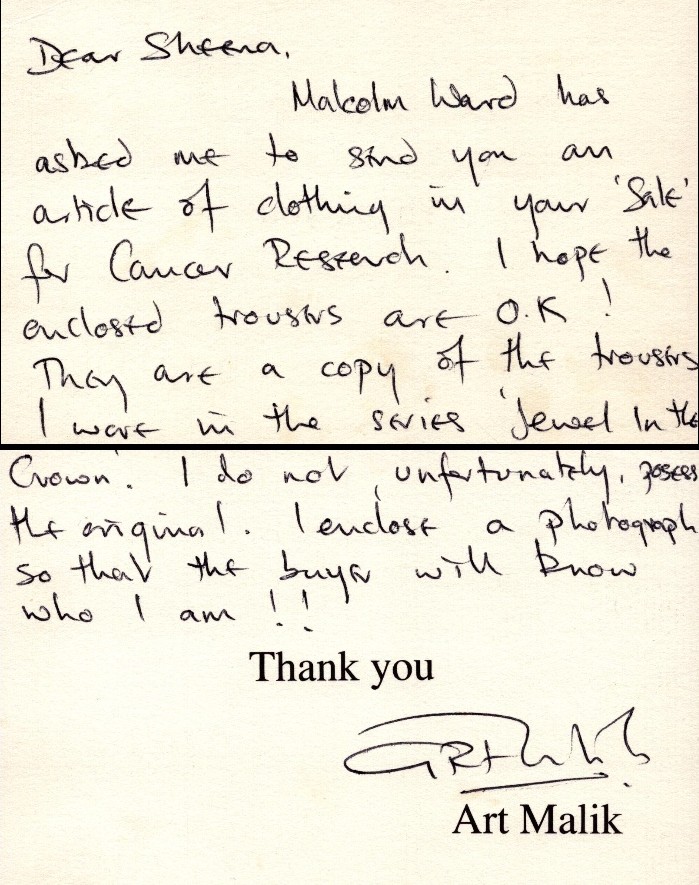 Dear Sheena,
Malcolm Ward has
asked me to send you an
article of clothing in your 'Sale'
for Cancer Research. I hope the
enclosed trousers are O.K !
They are a copy of the trousers
I wore in the series 'Jewel In the
Crown'. I do not, unfortunately, posess
the original. I enclose a photograph
so that the buyer will know
who I am !!
Thank you
Art Malik
Art Malik